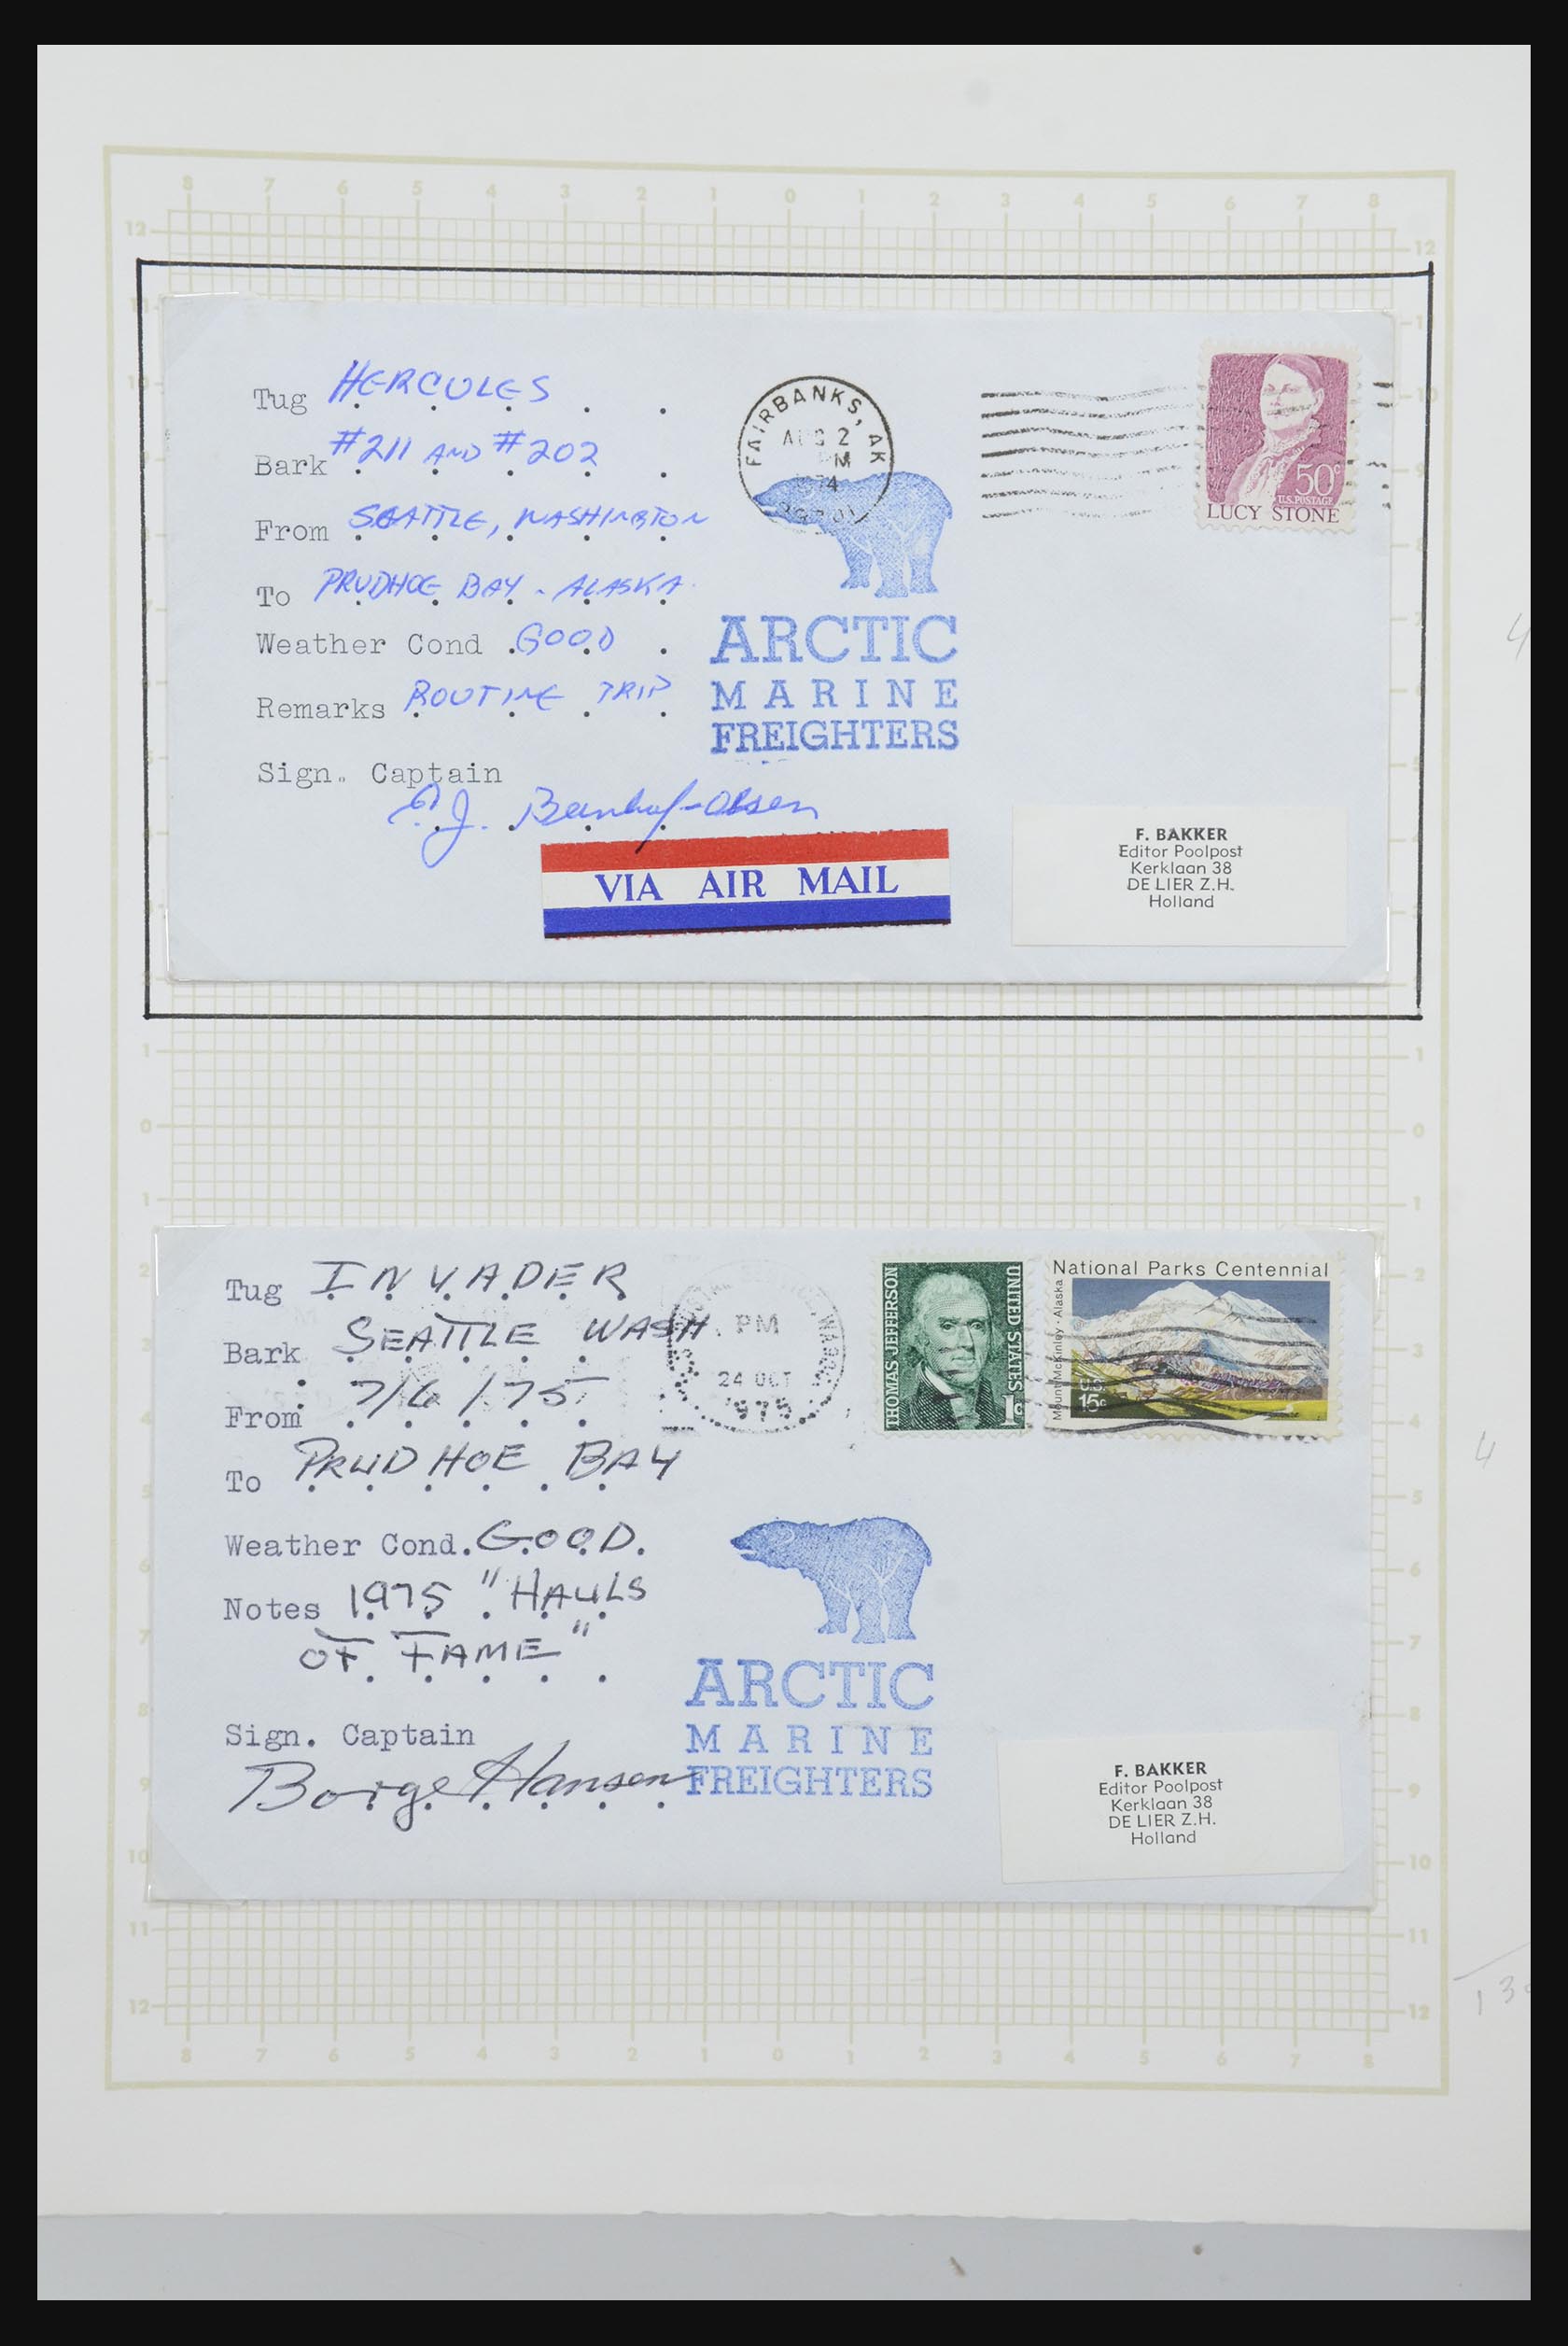 8 7 6 5 4 3 2 1 0 1 2 3 4 5 6 7 8
12 12
Tug HERCULES
Bark #211 AND #202
From SEATTLE, WASHINGTON
To PRUDHOE BAY - ALASKA
Weather Cond GOOD
Remarks ROUTINE TRIP
Sign. Captain
Olsen
FAIRBANKS, AK
AUG 2
PM
ARCTIC
MARINE
FREIGHTERS
50c
U.S. POSTAGE
LUCY STONE
VIA AIR MAIL
F. BAKKER
Editor Poolpost
Kerklaan 38
DE LIER Z.H.
Holland
4
1 1
0 0
1 1
Tug INVADER
Bark SEATTLE WASH
From 7/6/75
To PRUDHOE BAY
Weather Cond. GOOD.
Notes 1975 "HAULS
OF FAME"
Sign. Captain
Borge Hansen
PM
24 OCT
1975
THOMAS JEFFERSON
UNITED STATES
1c
National Parks Centennial
Mount McKinley · Alaska
U.S.
15c
ARCTIC
MARINE
FREIGHTERS
F. BAKKER
Editor Poolpost
Kerklaan 38
DE LIER Z.H.
Holland
4
2 3 4 5 6 7 8 9 10
11 11
12 12
8 7 6 5 4 3 2 1 0 1 2 3 4 5 6 7 8